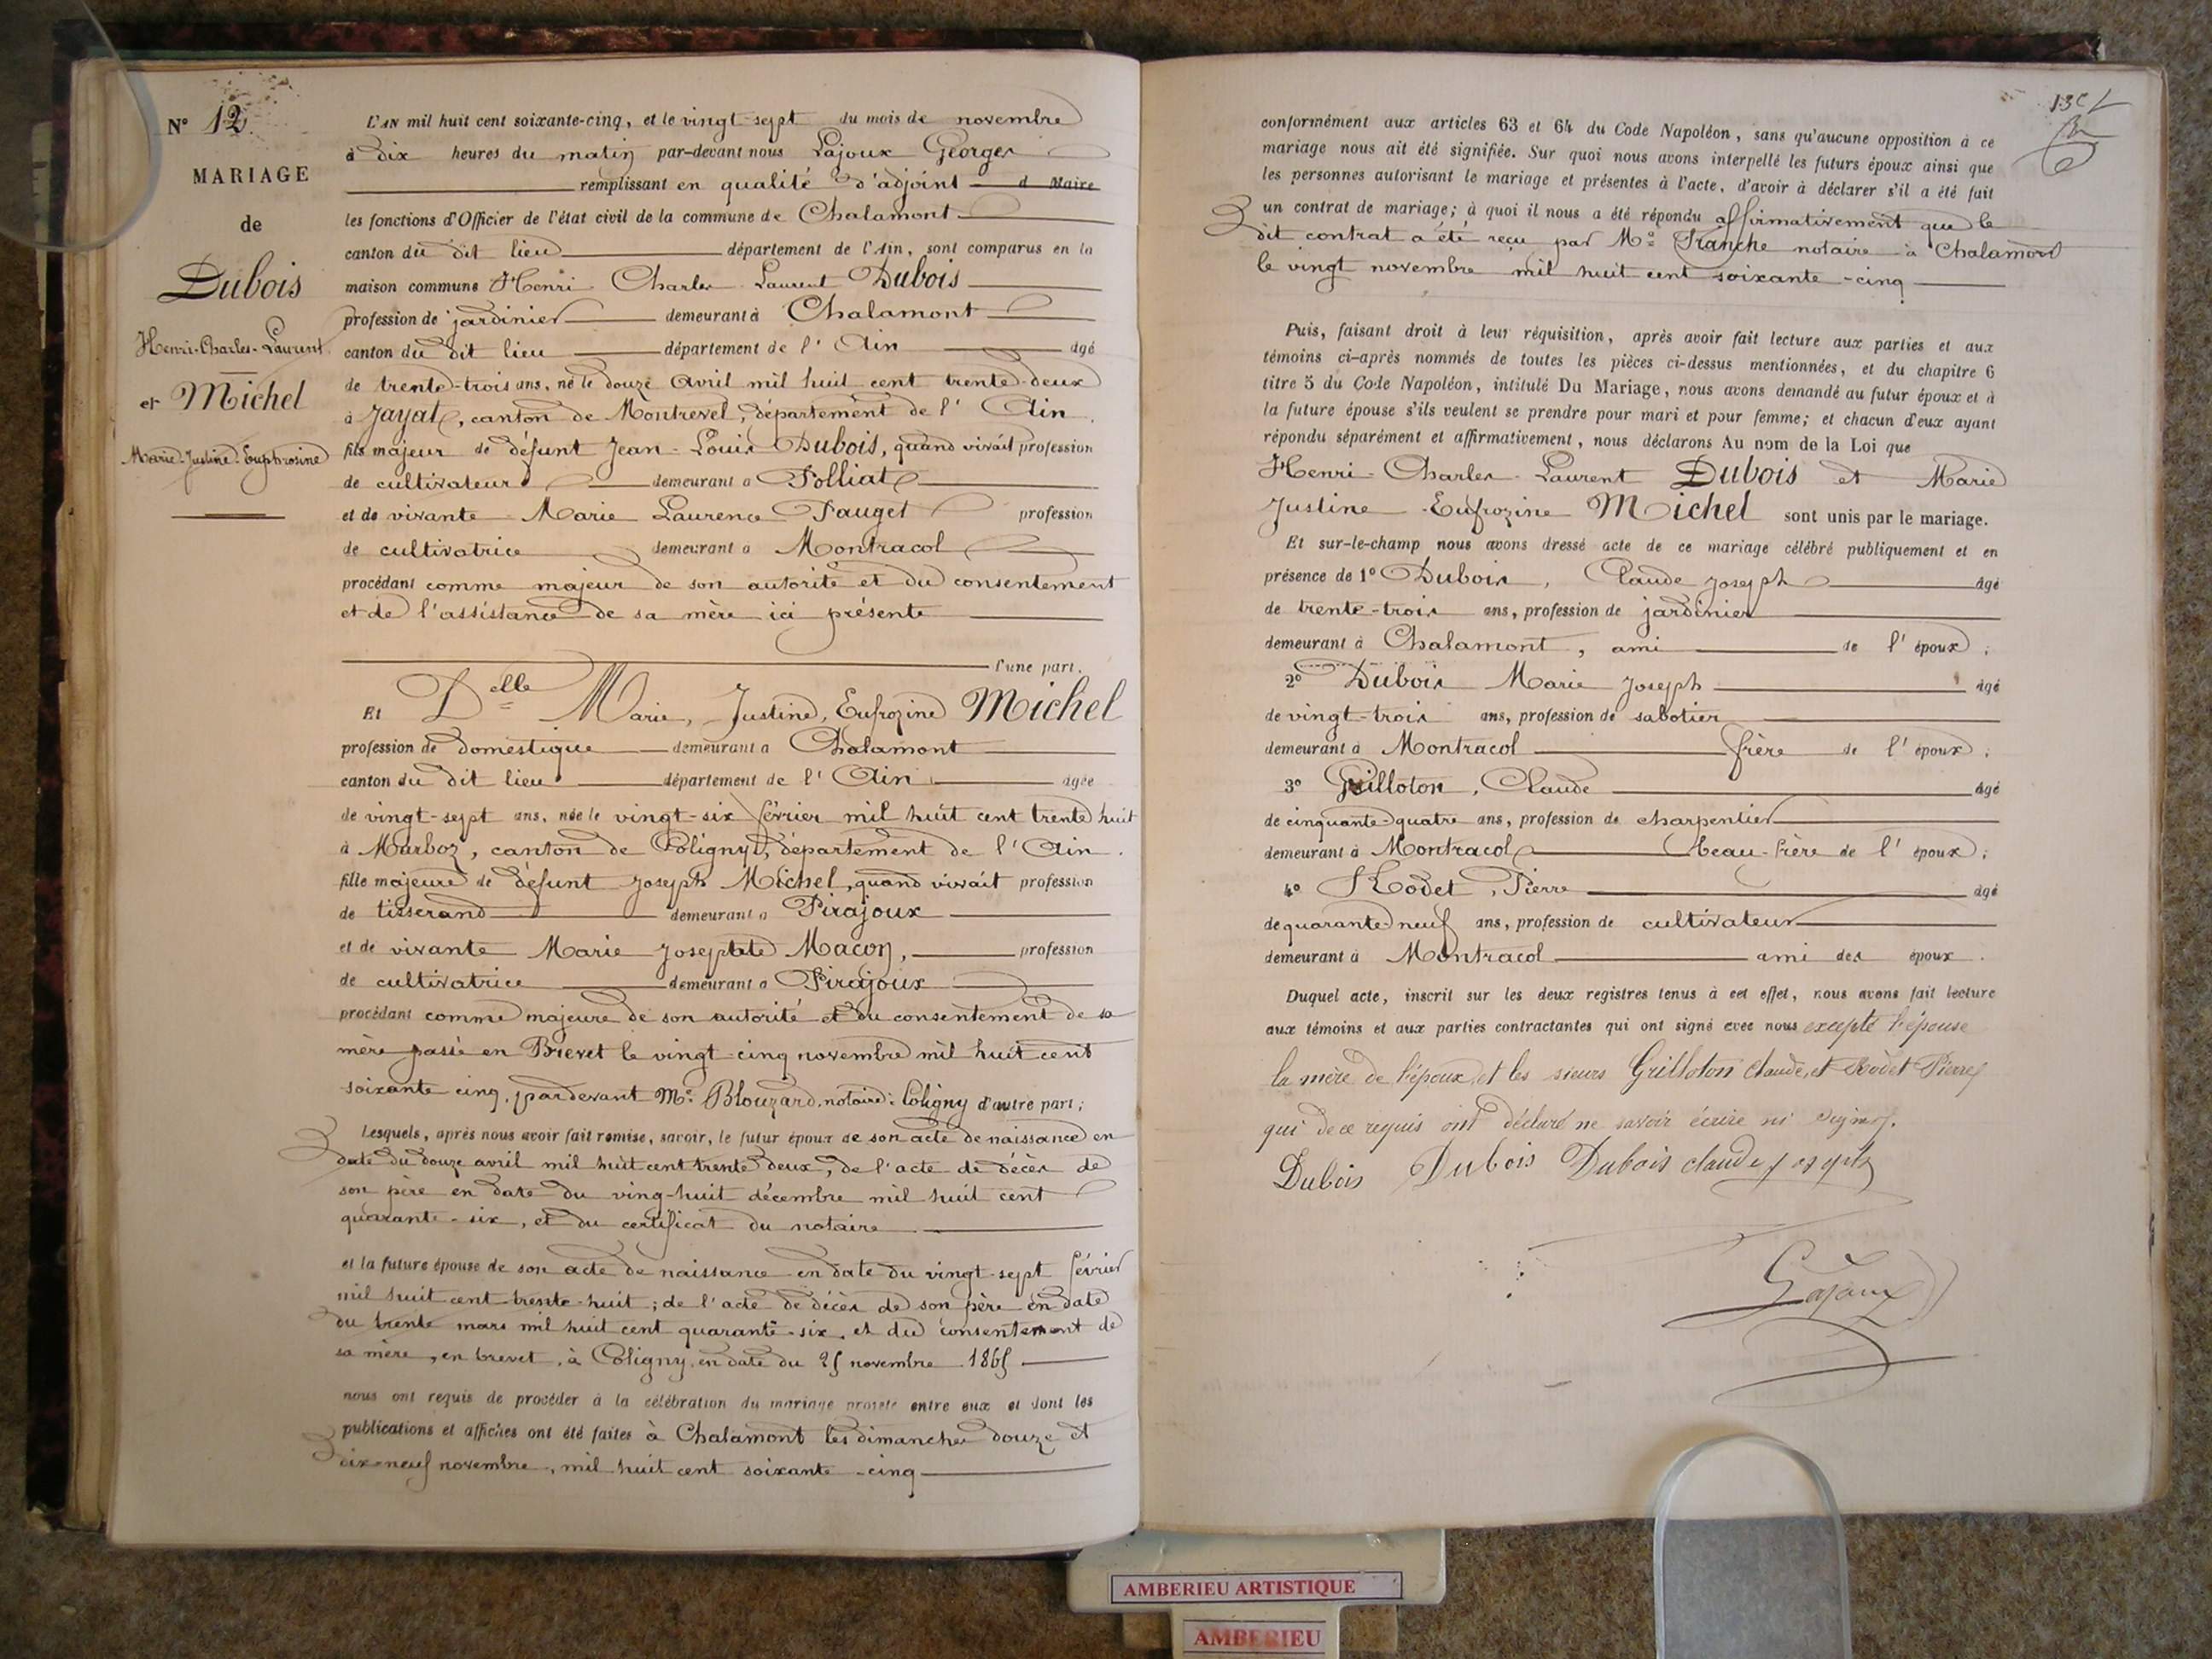 N° 12
MARIAGE
de
Dubois
Henri-Charles-Laurent
et Michel
Marie-Justine-Euphrosine
L'AN mil huit cent soixante-cinq, et le vingt-sept du mois de novembre
à dix heures du matin par-devant nous Lajoux Georges
remplissant en qualité d'adjoint d Maire
les fonctions d'Officier de l'état civil de la commune de Chalamont
canton du dit lieu département de l'Ain, sont comparus en la
maison commune Henri Charles Laurent Dubois
profession de jardinier demeurant à Chalamont
canton du dit lieu département de l'Ain âgé
de trente-trois ans, né le douze avril mil huit cent trente-deux
à Jayat, canton de Montrevel, département de l'Ain.
fils majeur de défunt Jean-Louis Dubois, quand vivait profession
de cultivateur demeurant à Polliat
et de vivante Marie Laurence Pauget profession
de cultivatrice demeurant à Montracol
procédant comme majeur de son autorité et du consentement
et de l'assistance de sa mère ici présente
l'une part.
Et Delle Marie, Justine, Eufrozine Michel
profession de domestique demeurant à Chalamont
canton du dit lieu département de l'Ain agée
de vingt-sept ans, née le vingt-six février mil huit cent trente huit
à Marboz, canton de Coligny, département de l'Ain.
fille majeure de défunt Joseph Michel, quand vivait profession
de tisserand demeurant à Pirajoux
et de vivante Marie Josephte Macon, profession
de cultivatrice demeurant à Pirajoux
procédant comme majeure de son autorité et du consentement de sa
mère passé en Brevet le vingt-cinq novembre mil huit cent
soixante cinq, pardevant Me Blouzard, notaire à Coligny d'autre part;
Lesquels, après nous avoir fait remise, savoir, le futur époux de son acte de naissance en
date du douze avril mil huit cent trente deux, de l'acte de décès de
son père en date du ving-huit décembre mil huit cent
quarante-six, et du certificat du notaire
et la future épouse de son acte de naissance en date du vingt-sept février
mil huit cent trente-huit; de l'acte de décès de son père en date
du trente mars mil huit cent quarante-six, et du consentement de
sa mère, en brevet, à Coligny, en date du 25 novembre 1865
nous ont requis de procéder à la célébration du mariage projeté entre eux et dont les
publications et affiches ont été faites à Chalamont les dimanches douze et
dix-neuf novembre, mil huit cent soixante-cinq
conformément aux articles 63 et 64 du Code Napoléon, sans qu'aucune opposition à ce
mariage nous ait été signifiée. Sur quoi nous avons interpellé les futurs époux ainsi que
les personnes autorisant le mariage et présentes à l'acte, d'avoir à déclarer s'il a été fait
un contrat de mariage; à quoi il nous a été répondu affirmativement que le
dit contrat a été reçu par Me Franche notaire à Chalamont
le vingt novembre mil huit cent soixante-cinq
Puis, faisant droit à leur réquisition, après avoir fait lecture aux parties et aux
témoins ci-après nommés de toutes les pièces ci-dessus mentionnées, et du chapitre 6
titre 5 du Code Napoléon, intitulé Du Mariage, nous avons demandé au futur époux et à
la future épouse s'ils veulent se prendre pour mari et pour femme; et chacun d'eux ayant
répondu séparément et affirmativement, nous déclarons Au nom de la Loi que
Henri-Charles-Laurent Dubois et Marie
Justine-Eufrozine Michel sont unis par le mariage.
Et sur-le-champ nous avons dressé acte de ce mariage célébré publiquement et en
présence de 1° Dubois, Claude Joseph âgé
de trente-trois ans, profession de jardinier
demeurant à Chalamont, ami de l'époux;
2° Dubois Marie Joseph âgé
de vingt-trois ans, profession de sabotier
demeurant à Montracol frère de l'époux;
3° Grilloton, Claude âgé
de cinquante-quatre ans, profession de charpentier
demeurant à Montracol beau-frère de l'époux;
4° Rodet, Pierre âgé
de quarante neuf ans, profession de cultivateur
demeurant à Montracol ami des époux.
Duquel acte, inscrit sur les deux registres tenus à cet effet, nous avons fait lecture
aux témoins et aux parties contractantes qui ont signé avec nous excepté l'épouse
la mère de l'époux, et les sieurs Grilloton Claude, et Rodet Pierre
qui de ce requis ont déclaré ne savoir écrire ni signer.
Dubois Dubois Dubois claude joseph
Lajoux
AMBERIEU ARTISTIQUE
AMBERIEU